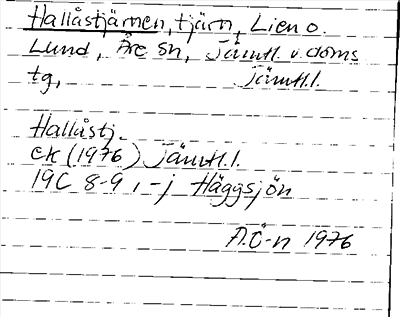 Hallåstjärnen, tjärn, Lien o.
Lund, Åre sn, Jämtl. v. doms
tg, Jämtl.l.
Hallåstj.
ek (1976) Jämtl.l.
19C 8-9, i-j Häggsjön
A.Ö-n 1976